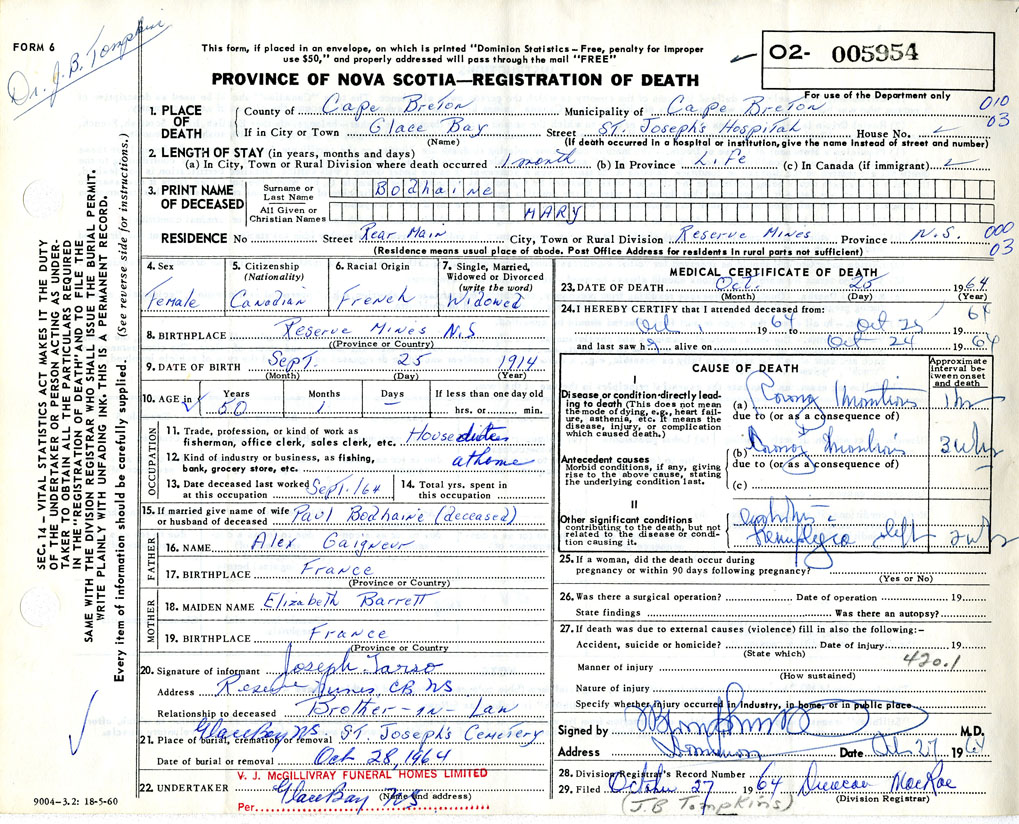 FORM 6
Dr. J. B. Tompkins
This form, if placed in an envelope, on which is printed "Dominion Statistics – Free, penalty for improper
use $50," and properly addressed will pass through the mail "FREE"
PROVINCE OF NOVA SCOTIA—REGISTRATION OF DEATH
02- 005954
For use of the Department only
010
03
1. PLACE OF DEATH
County of Cape Breton Municipality of Cape Breton
If in City or Town Glace Bay Street St. Joseph's Hospital House No.
(Name) (If death occurred in a hospital or institution, give the name instead of street and number)
2. LENGTH OF STAY (in years, months and days)
(a) In City, Town or Rural Division where death occurred 1 month (b) In Province Life (c) In Canada (if immigrant)
3. PRINT NAME OF DECEASED
Surname or Last Name Bodhaine
All Given or Christian Names MARY
RESIDENCE No Street Rear Main City, Town or Rural Division Reserve Mines Province N.S.
000
03
(Residence means usual place of abode. Post Office Address for residents in rural parts not sufficient)
4. Sex Female
5. Citizenship (Nationality) Canadian
6. Racial Origin French
7. Single, Married, Widowed or Divorced (write the word) Widowed
8. BIRTHPLACE Reserve Mines N.S
(Province or Country)
9. DATE OF BIRTH Sept. 25 1914
(Month) (Day) (Year)
10. AGE in Years 50 Months 1 Days – If less than one day old hrs. or min.
OCCUPATION
11. Trade, profession, or kind of work as
fisherman, office clerk, sales clerk, etc. House duties
12. Kind of industry or business, as fishing,
bank, grocery store, etc. at home
13. Date deceased last worked at this occupation Sept. /64
14. Total yrs. spent in this occupation
15. If married give name of wife
or husband of deceased Paul Bodhaine (deceased)
FATHER
16. NAME Alex Gaigneur
17. BIRTHPLACE France
(Province or Country)
MOTHER
18. MAIDEN NAME Elizabeth Barrett
19. BIRTHPLACE France
(Province or Country)
20. Signature of informant Joseph Tarso
Address Reserve Mines CB NS
Relationship to deceased Brother-in-Law
21. Place of burial, cremation or removal Glace Bay NS. St. Joseph's Cemetery
Date of burial or removal Oct 28, 1964
V. J. McGILLIVRAY FUNERAL HOMES LIMITED
22. UNDERTAKER Glace Bay NS
(Name and address)
Per
9004-3.2: 18-5-60
SEC. 14 – VITAL STATISTICS ACT MAKES IT THE DUTY
OF THE UNDERTAKER OR PERSON ACTING AS UNDER-
TAKER TO OBTAIN ALL THE PARTICULARS REQUIRED
IN THE "REGISTRATION OF DEATH" AND TO FILE THE
SAME WITH THE DIVISION REGISTRAR WHO SHALL ISSUE THE BURIAL PERMIT.
WRITE PLAINLY WITH UNFADING INK. THIS IS A PERMANENT RECORD.
Every item of information should be carefully supplied. (See reverse side for instructions.)
MEDICAL CERTIFICATE OF DEATH
23. DATE OF DEATH Oct. 25 1964
(Month) (Day) (Year)
24. I HEREBY CERTIFY that I attended deceased from:
Oct 1 1964 to Oct 25 64
and last saw h alive on Oct 24 1964
CAUSE OF DEATH
Approximate interval between onset and death
I
Disease or condition directly leading to death (This does not mean the mode of dying, e.g., heart failure, asthenia, etc. It means the disease, injury, or complication which caused death.)
(a)
due to (or as a consequence of)
Antecedent causes
Morbid conditions, if any, giving rise to the above cause, stating the underlying condition last.
(b)
due to (or as a consequence of)
(c)
II
Other significant conditions
contributing to the death, but not related to the disease or condition causing it.
Hemiplegia left
25. If a woman, did the death occur during
pregnancy or within 90 days following pregnancy?
(Yes or No)
26. Was there a surgical operation? Date of operation 19
State findings Was there an autopsy?
27. If death was due to external causes (violence) fill in also the following:–
Accident, suicide or homicide? Date of injury 19
(State which)
420.1
Manner of injury
(How sustained)
Nature of injury
Specify whether injury occurred in industry, in home, or in public place
Signed by M.D.
Address Dominion Date Oct 27 1964
28. Division Registrar's Record Number
29. Filed October 27 1964 Duncan MacRae
(Division Registrar)
(J.B Tompkins)